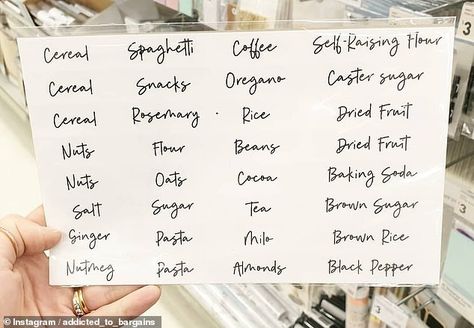 Cereal Spaghetti Coffee Self-Raising Flour
Cereal Snacks Oregano Caster sugar
Cereal Rosemary Rice Dried Fruit
Nuts Flour Beans Dried Fruit
Nuts Oats Cocoa Baking Soda
Salt Sugar Tea Brown Sugar
Ginger Pasta Milo Brown Rice
Nutmeg Pasta Almonds Black Pepper
3
3
3
© Instagram / addicted_to_bargains